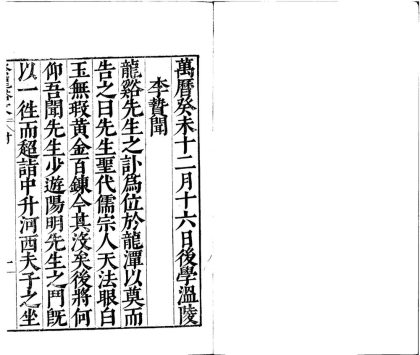 萬曆癸未十二月十六日後學溫陵
李贄聞
龍谿先生之訃為位於龍潭以奠而
告之曰先生聖代儒宗人天法眼白
玉無瑕黃金百鍊今其沒矣後將何
仰吾聞先生少遊陽明先生之門旣
以一徃而超詣中升河西夫子之坐